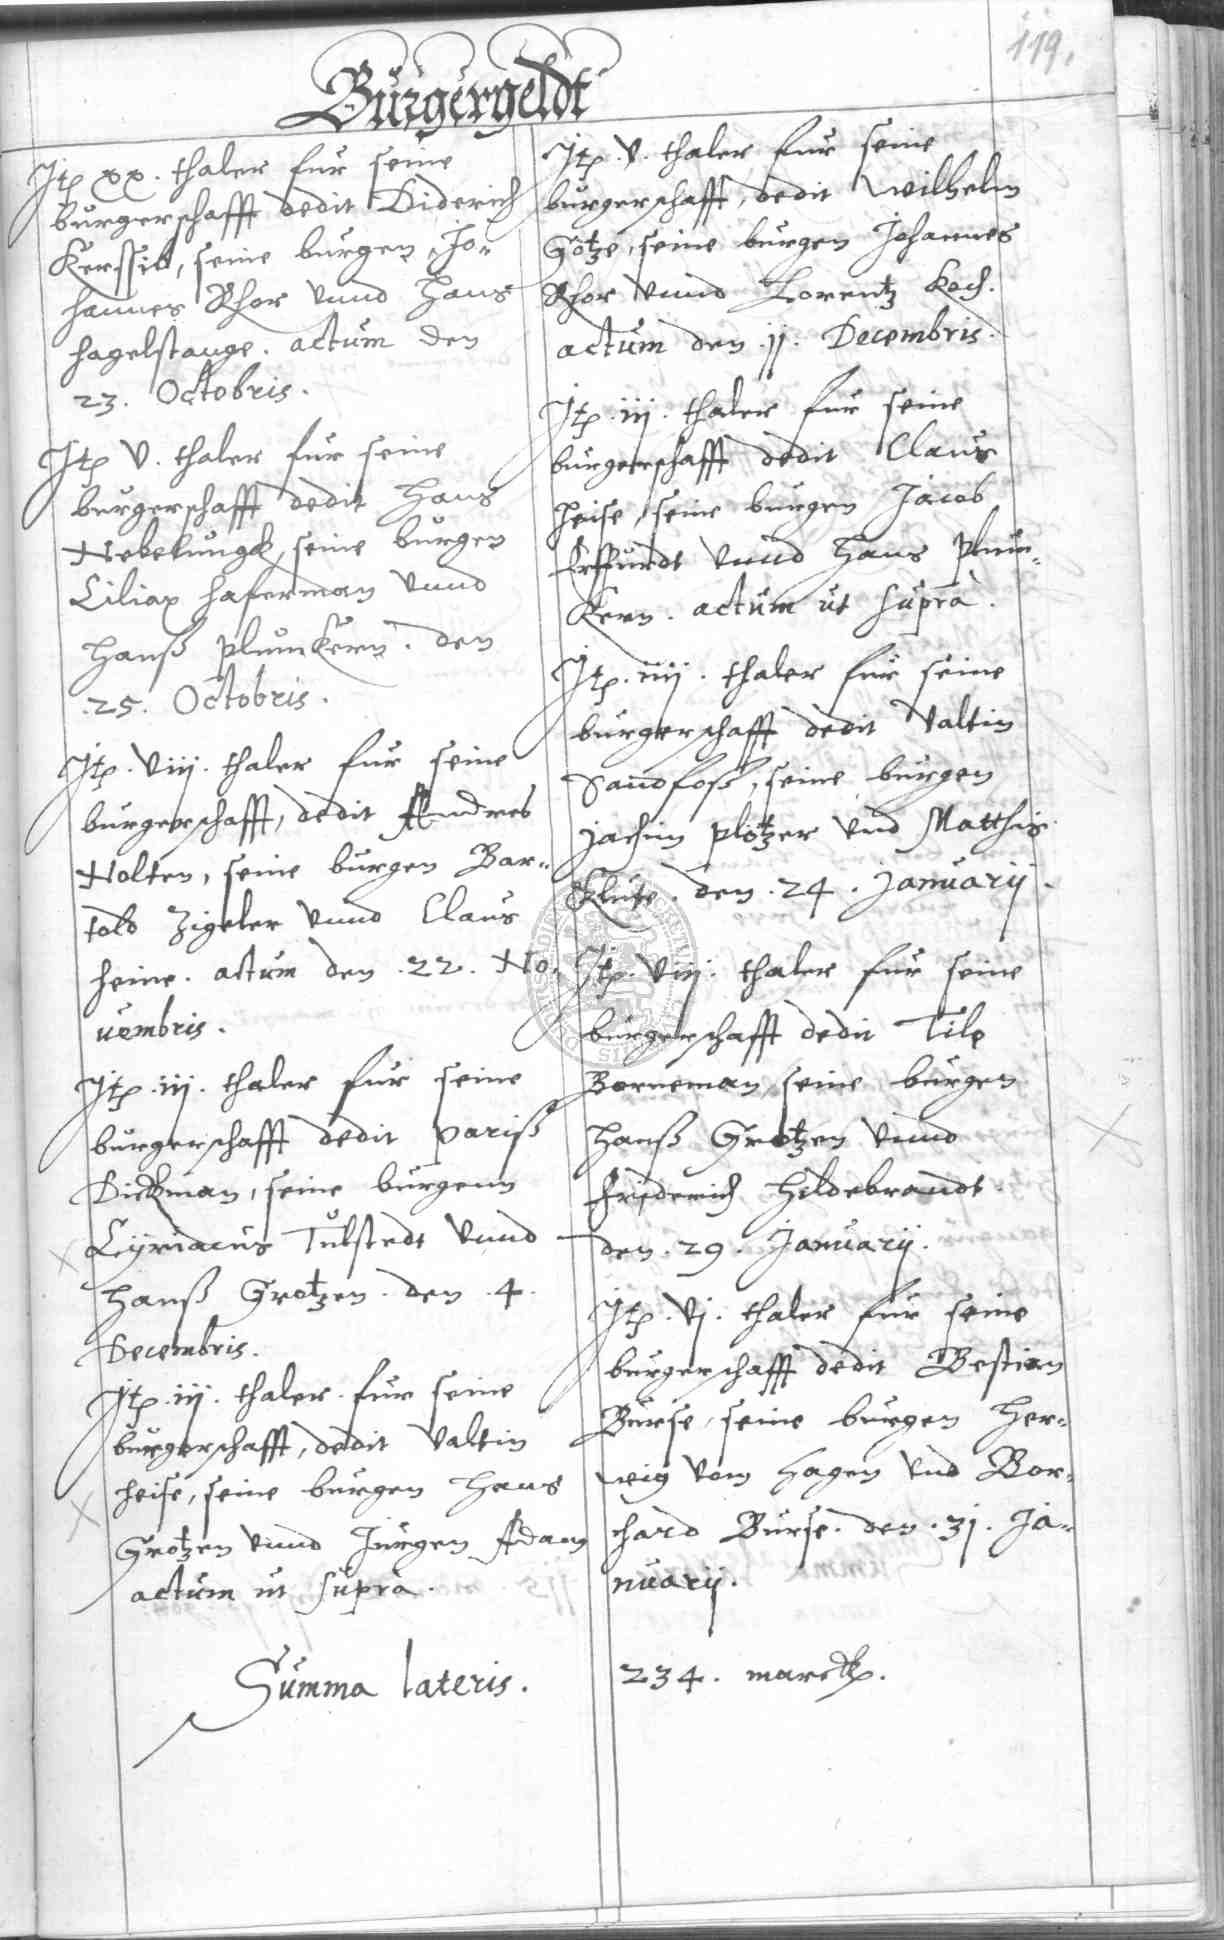 119.
Bürgergeldt
Itp xx. thaler fur seine
burgerschafft dedit Diderich
Kerssib, seine burgen Jo-
hannes Rhor vnnd Hans
Hagelstange. actum den
23. Octobris.
Itp V. thaler fur seine
burgerschafft dedit Hans
Nebelungk, seine burgen
Ciliax Haferman vnnd
Hanß Plumkern. den
25. Octobris.
Itp. viij. thaler fur seine
burgerschafft, dedit Andres
Nolten, seine burgen Bar-
told Zigeler vnnd Claus
Heine. actum den .22. No-
uembris.
Itp .iij. thaler fur seine
burgerschafft dedit Pariß
Dickman, seine burgenn
Cyriacus Tulstedt vnnd
Hanß Grotzen. den .4.
Decembris.
Itp .iij. thaler fur seine
burgerschafft, dedit Valtin
Heise, seine burgen Hans
Grotzen vnnd Jurgen Adam
actum ut supra.
Itp .V. thaler fur seine
burgerschafft, dedit Wilhelm
Götze, seine burgen Johannes
Rhor vnnd Lorentz Koch.
actum den .11. Decembris.
Itp .iij. thaler fur seine
burgerschafft dedit Claus
Heise, seine burgen Jacob
Erffurdt vnnd Hans Plum-
Kern. actum ut supra.
Itp. iiij. thaler fur seine
burgerschafft dedit Valtin
Sandfoß, seine burgen
Jachim Plötzer vnd Matthis
Klute. den .24. Januarij.
Itp. viij. thaler fur seine
burgerschafft dedit Tile
Borneman, seine burgen
Hanß Grotzen vnnd
Friderich Hildebrandt.
den .29. Januarij.
Itp .vj. thaler fur seine
burgerschafft dedit Bestian
Burse, seine burgen Her-
wig vom Hagen vnd Bor-
chard Burse. den .31. Ja-
nuarij.
Summa lateris. 234. marck.